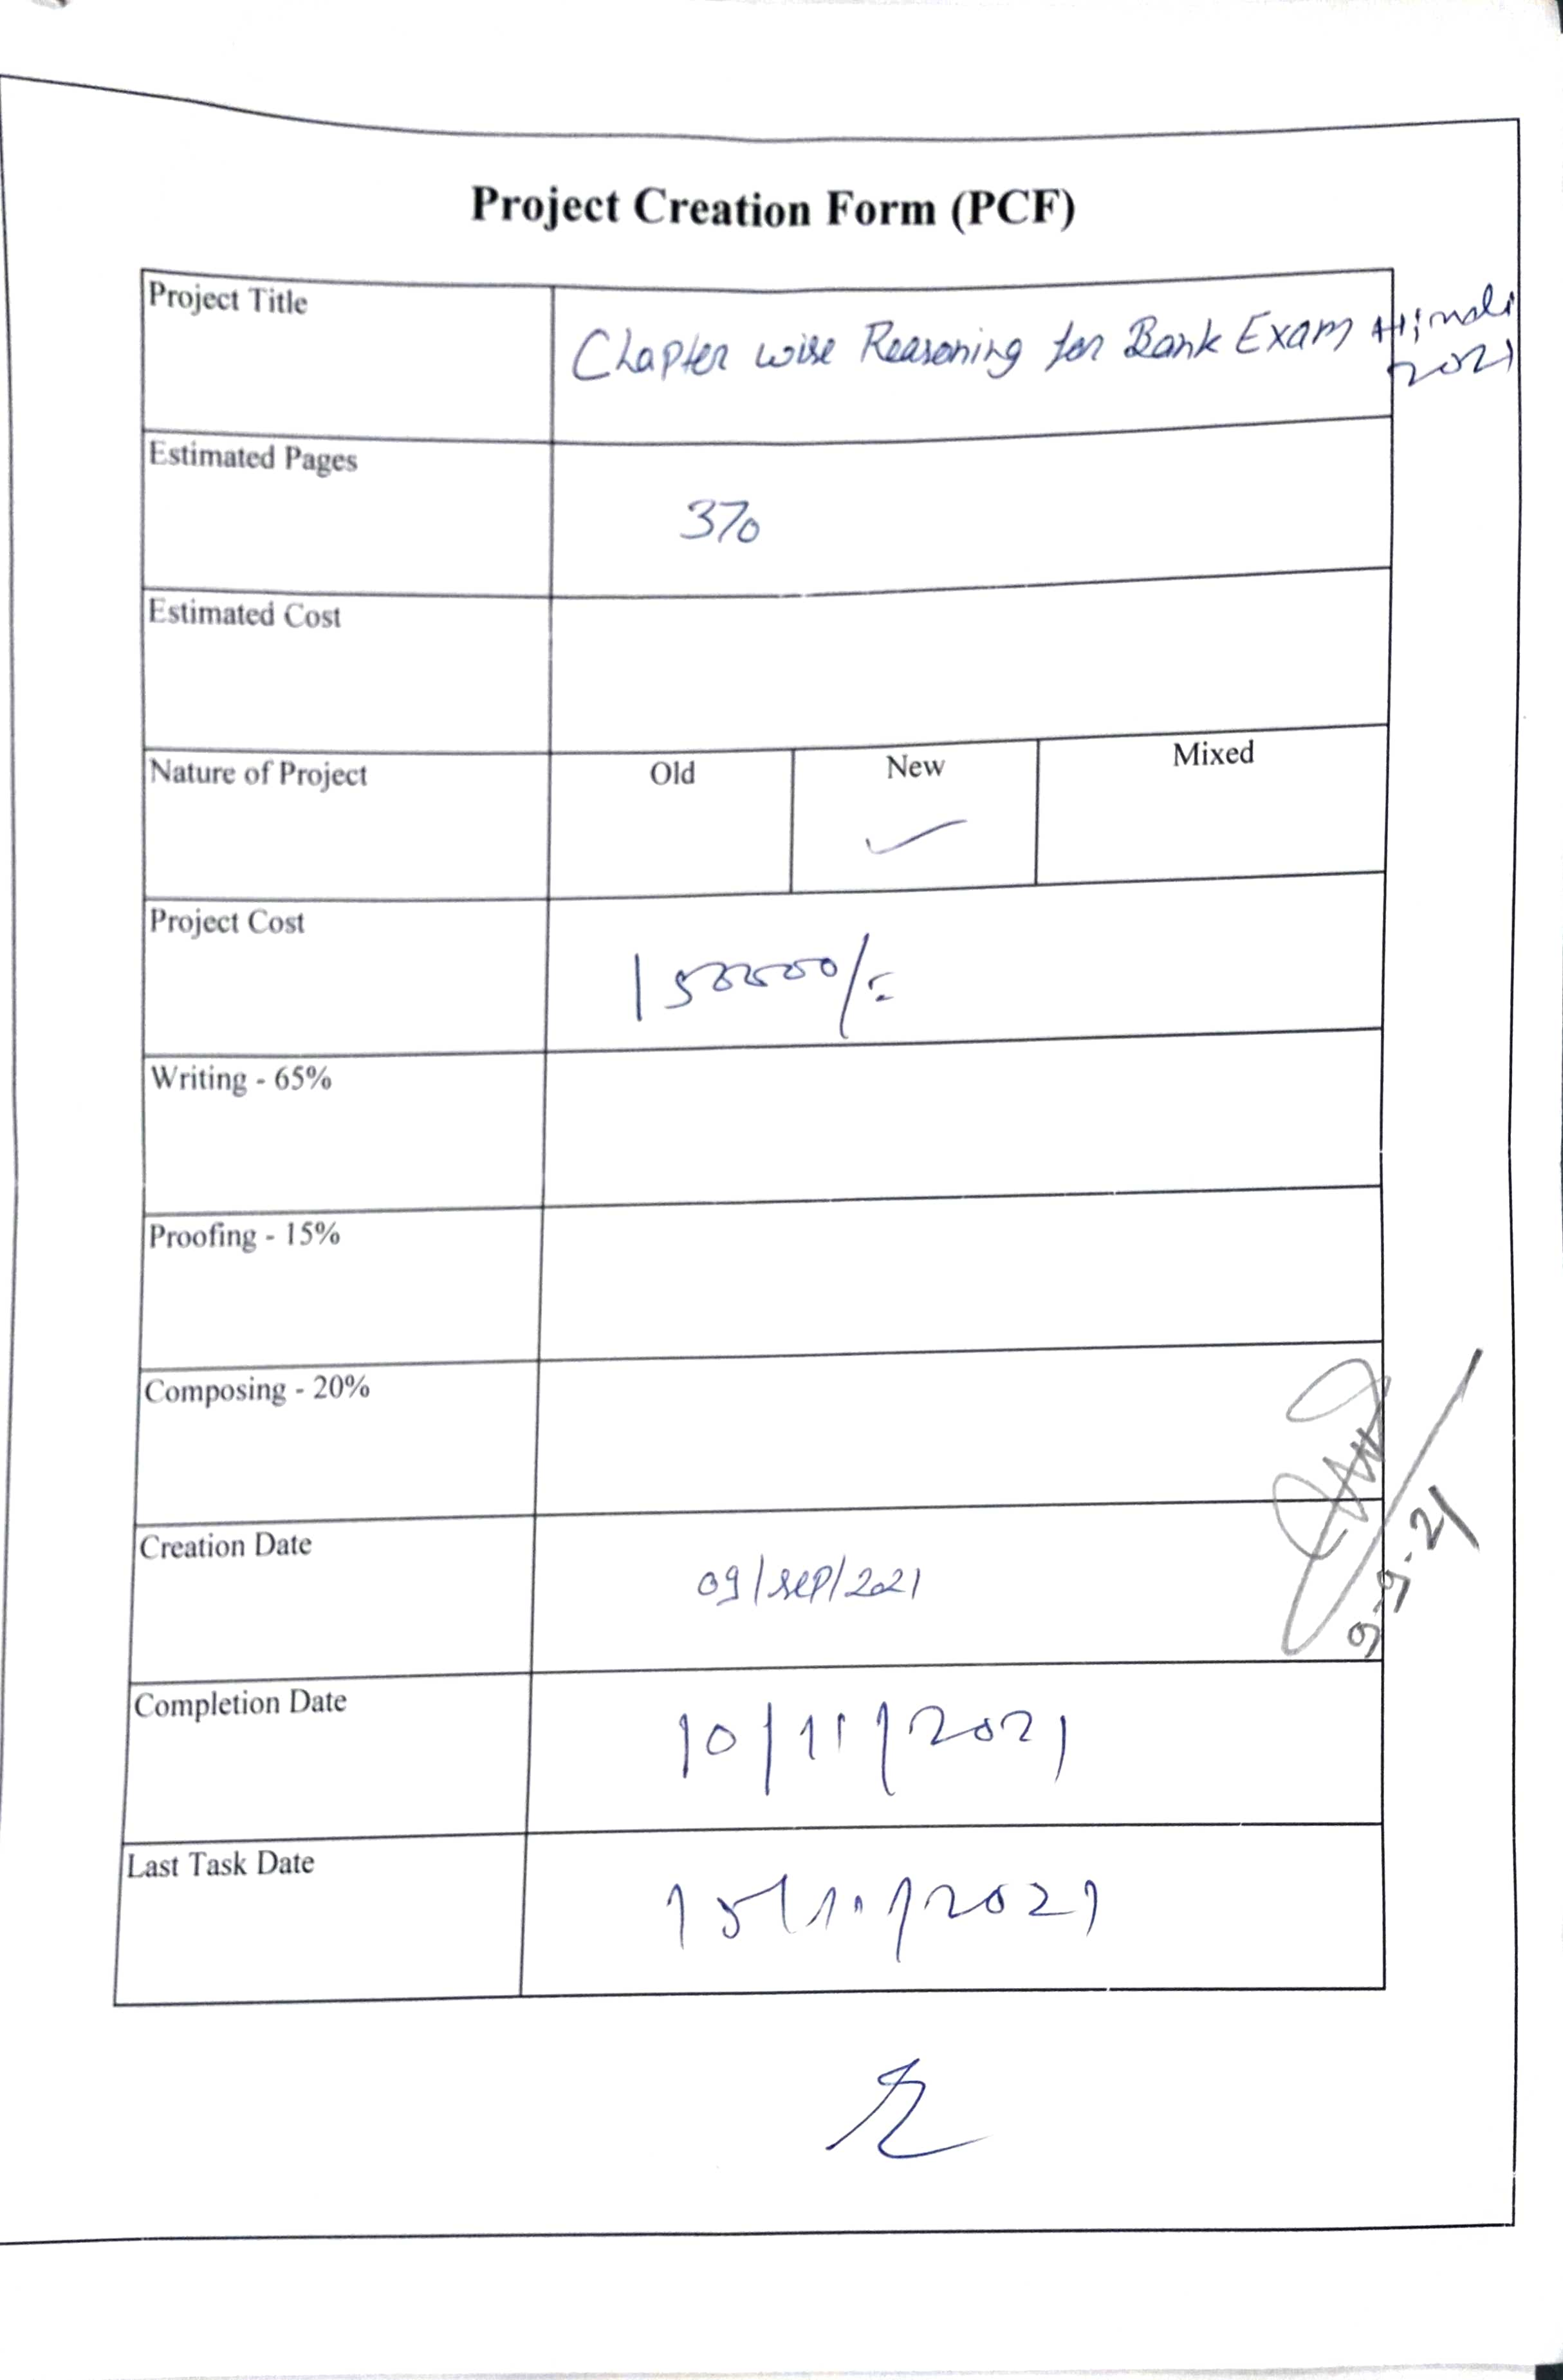 Project Creation Form (PCF)
Project Title
Chapter wise Reasoning for Bank Exam Hindi
2021
Estimated Pages
370
Estimated Cost
Nature of Project
Old
New
Mixed
Project Cost
Writing - 65%
Proofing - 15%
Composing - 20%
9-9-21
Creation Date
09/sep/2021
Completion Date
10/11/2021
Last Task Date